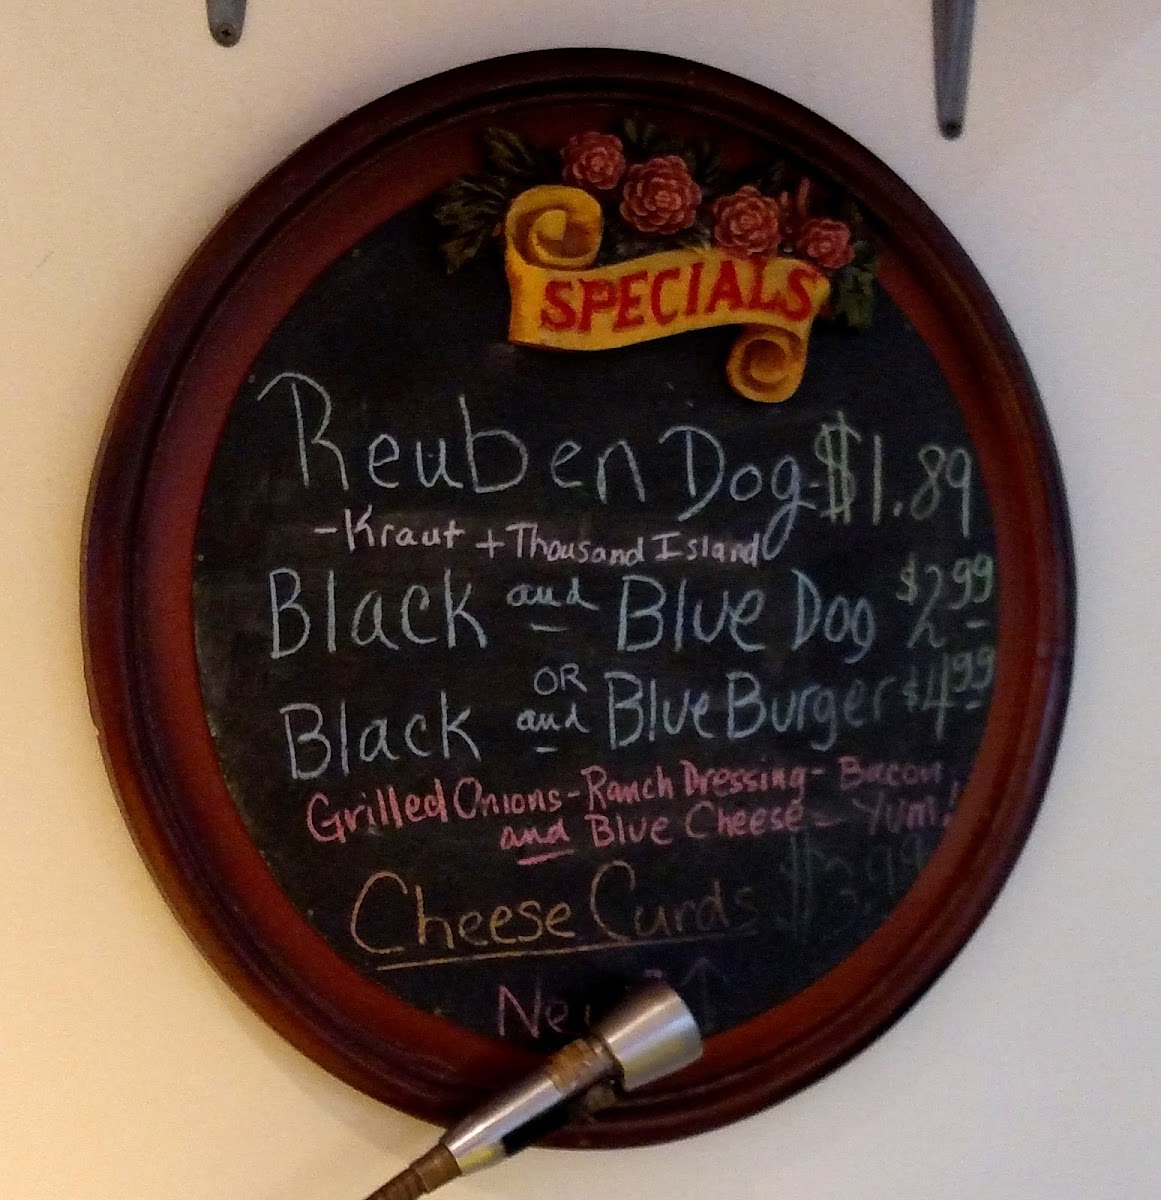 SPECIALS
Reuben Dog-$1.89
-Kraut + Thousand Island
Black and Blue Dog $2.99
OR
Black and Blue Burger $4.99
Grilled Onions-Ranch Dressing-Bacon
and Blue Cheese - Yum!
Cheese Curds $3.99